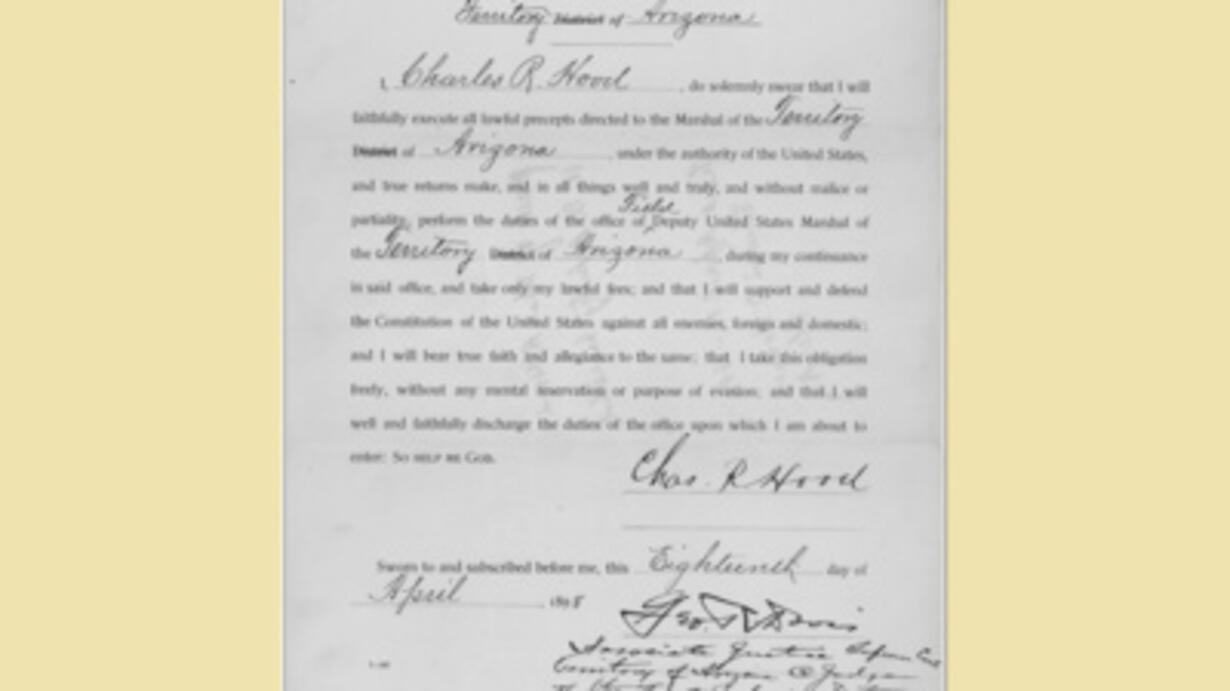 Territory District of Arizona
I, Charles R. Hood, do solemnly swear that I will
faithfully execute all lawful precepts directed to the Marshal of the Territory
District of Arizona, under the authority of the United States,
and true returns make, and in all things well and truly, and without malice or
partiality, perform the duties of the office of Field Deputy United States Marshal of
the Territory District of Arizona, during my continuance
in said office, and take only my lawful fees; and that I will support and defend
the Constitution of the United States against all enemies, foreign and domestic;
and I will bear true faith and allegiance to the same; that I take this obligation
freely, without any mental reservation or purpose of evasion; and that I will
well and faithfully discharge the duties of the office upon which I am about to
enter: So help me God.
Chas. R Hood
Sworn to and subscribed before me, this Eighteenth day of
April, 1898
Geo. R Davis
Associate Justice Supreme Court
Territory of Judge